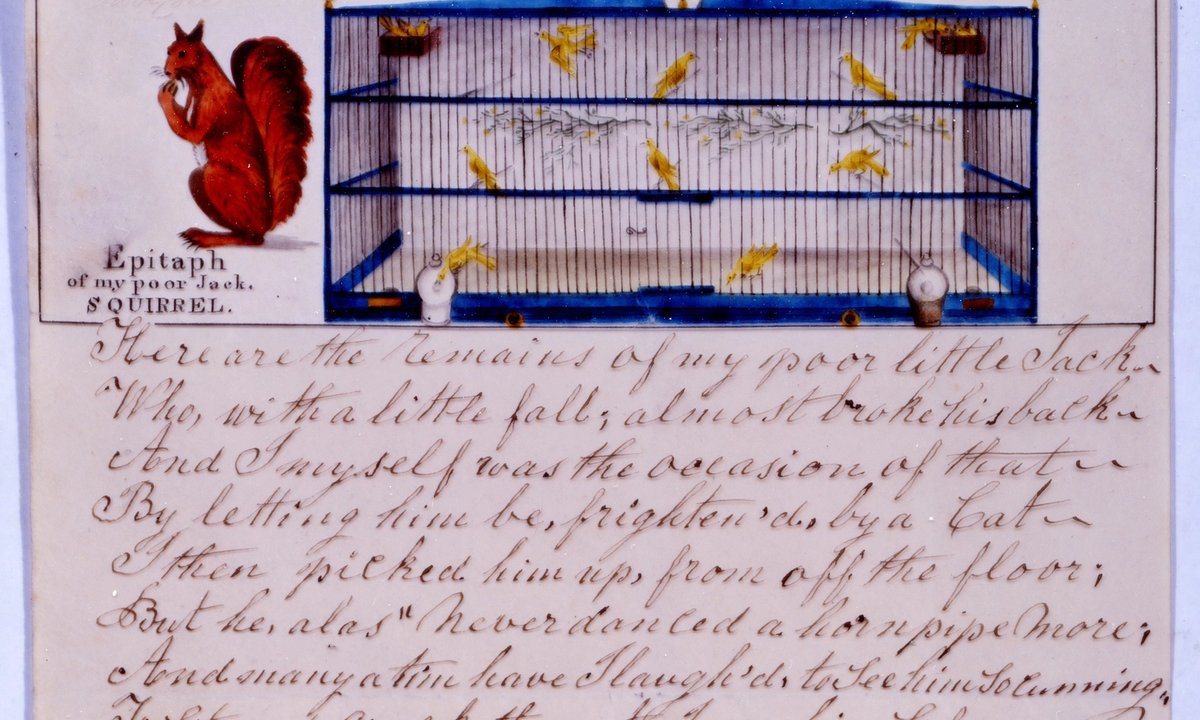 Epitaph
of my poor Jack.
SQUIRREL.
Here are the remains of my poor little Jack~
Who, with a little fall; almost broke his back~
And I myself was the occasion of that~~
By letting him be, frighten'd, by a Cat~
I then picked him up, from off, the floor;
But he, alas" Never danced a hornpipe More;
And many a tim have I laugh'd, to See him So Cunning,